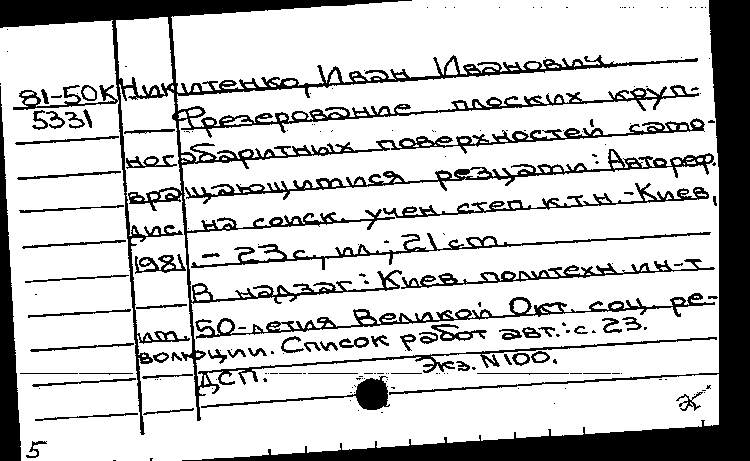 81-50К Никитенко, Иван Иванович.
5331 Фрезерование плоских круп-
ногабаритных поверхностей само-
вращающимися резцами: Автореф.
дис. на соиск. учен. степ. к.т.н. -Киев,
1981. - 23 с., ил.; 21 см.
В надзаг: Киев. политехн. ин-т
им. 50-летия Великой Окт. соц. ре-
волюции. Список работ авт.: с. 23.
ДСП. Экз. N100.
5